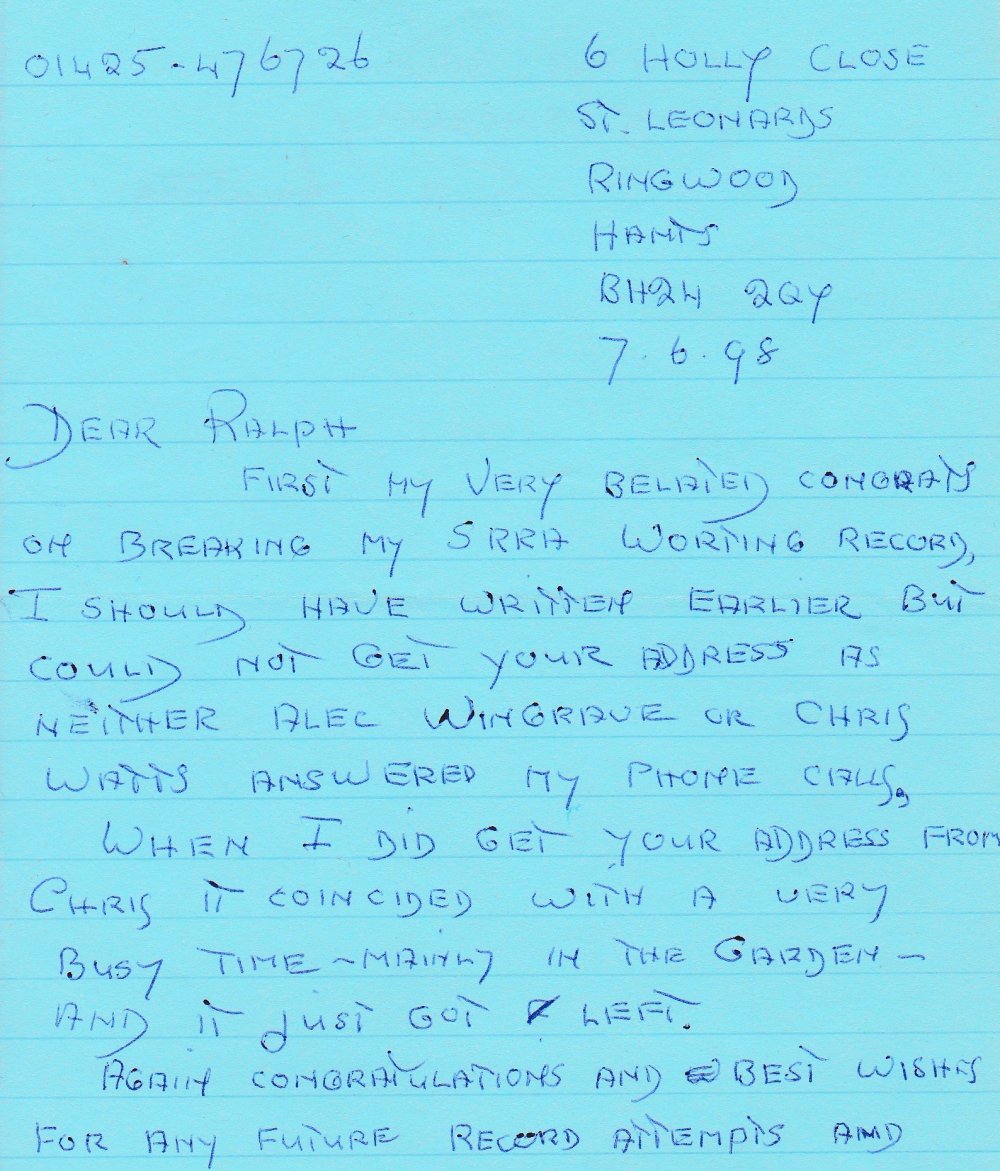 01425-476726
6 HOLLY CLOSE
ST. LEONARDS
RINGWOOD
HANTS
BH24 2QY
7.6.98
DEAR RALPH
FIRST MY VERY BELATED CONGRATS
ON BREAKING MY SRRA WORTING RECORD,
I SHOULD HAVE WRITTEN EARLIER BUT
COULD NOT GET YOUR ADDRESS AS
NEITHER ALEC WINGRAVE OR CHRIS
WATTS ANSWERED MY PHONE CALLS,
WHEN I DID GET YOUR ADDRESS FROM
CHRIS IT COINCIDED WITH A VERY
BUSY TIME - MAINLY IN THE GARDEN -
AND IT JUST GOT LEFT.
AGAIN CONGRATULATIONS AND BEST WISHES
FOR ANY FUTURE RECORD ATTEMPTS AND